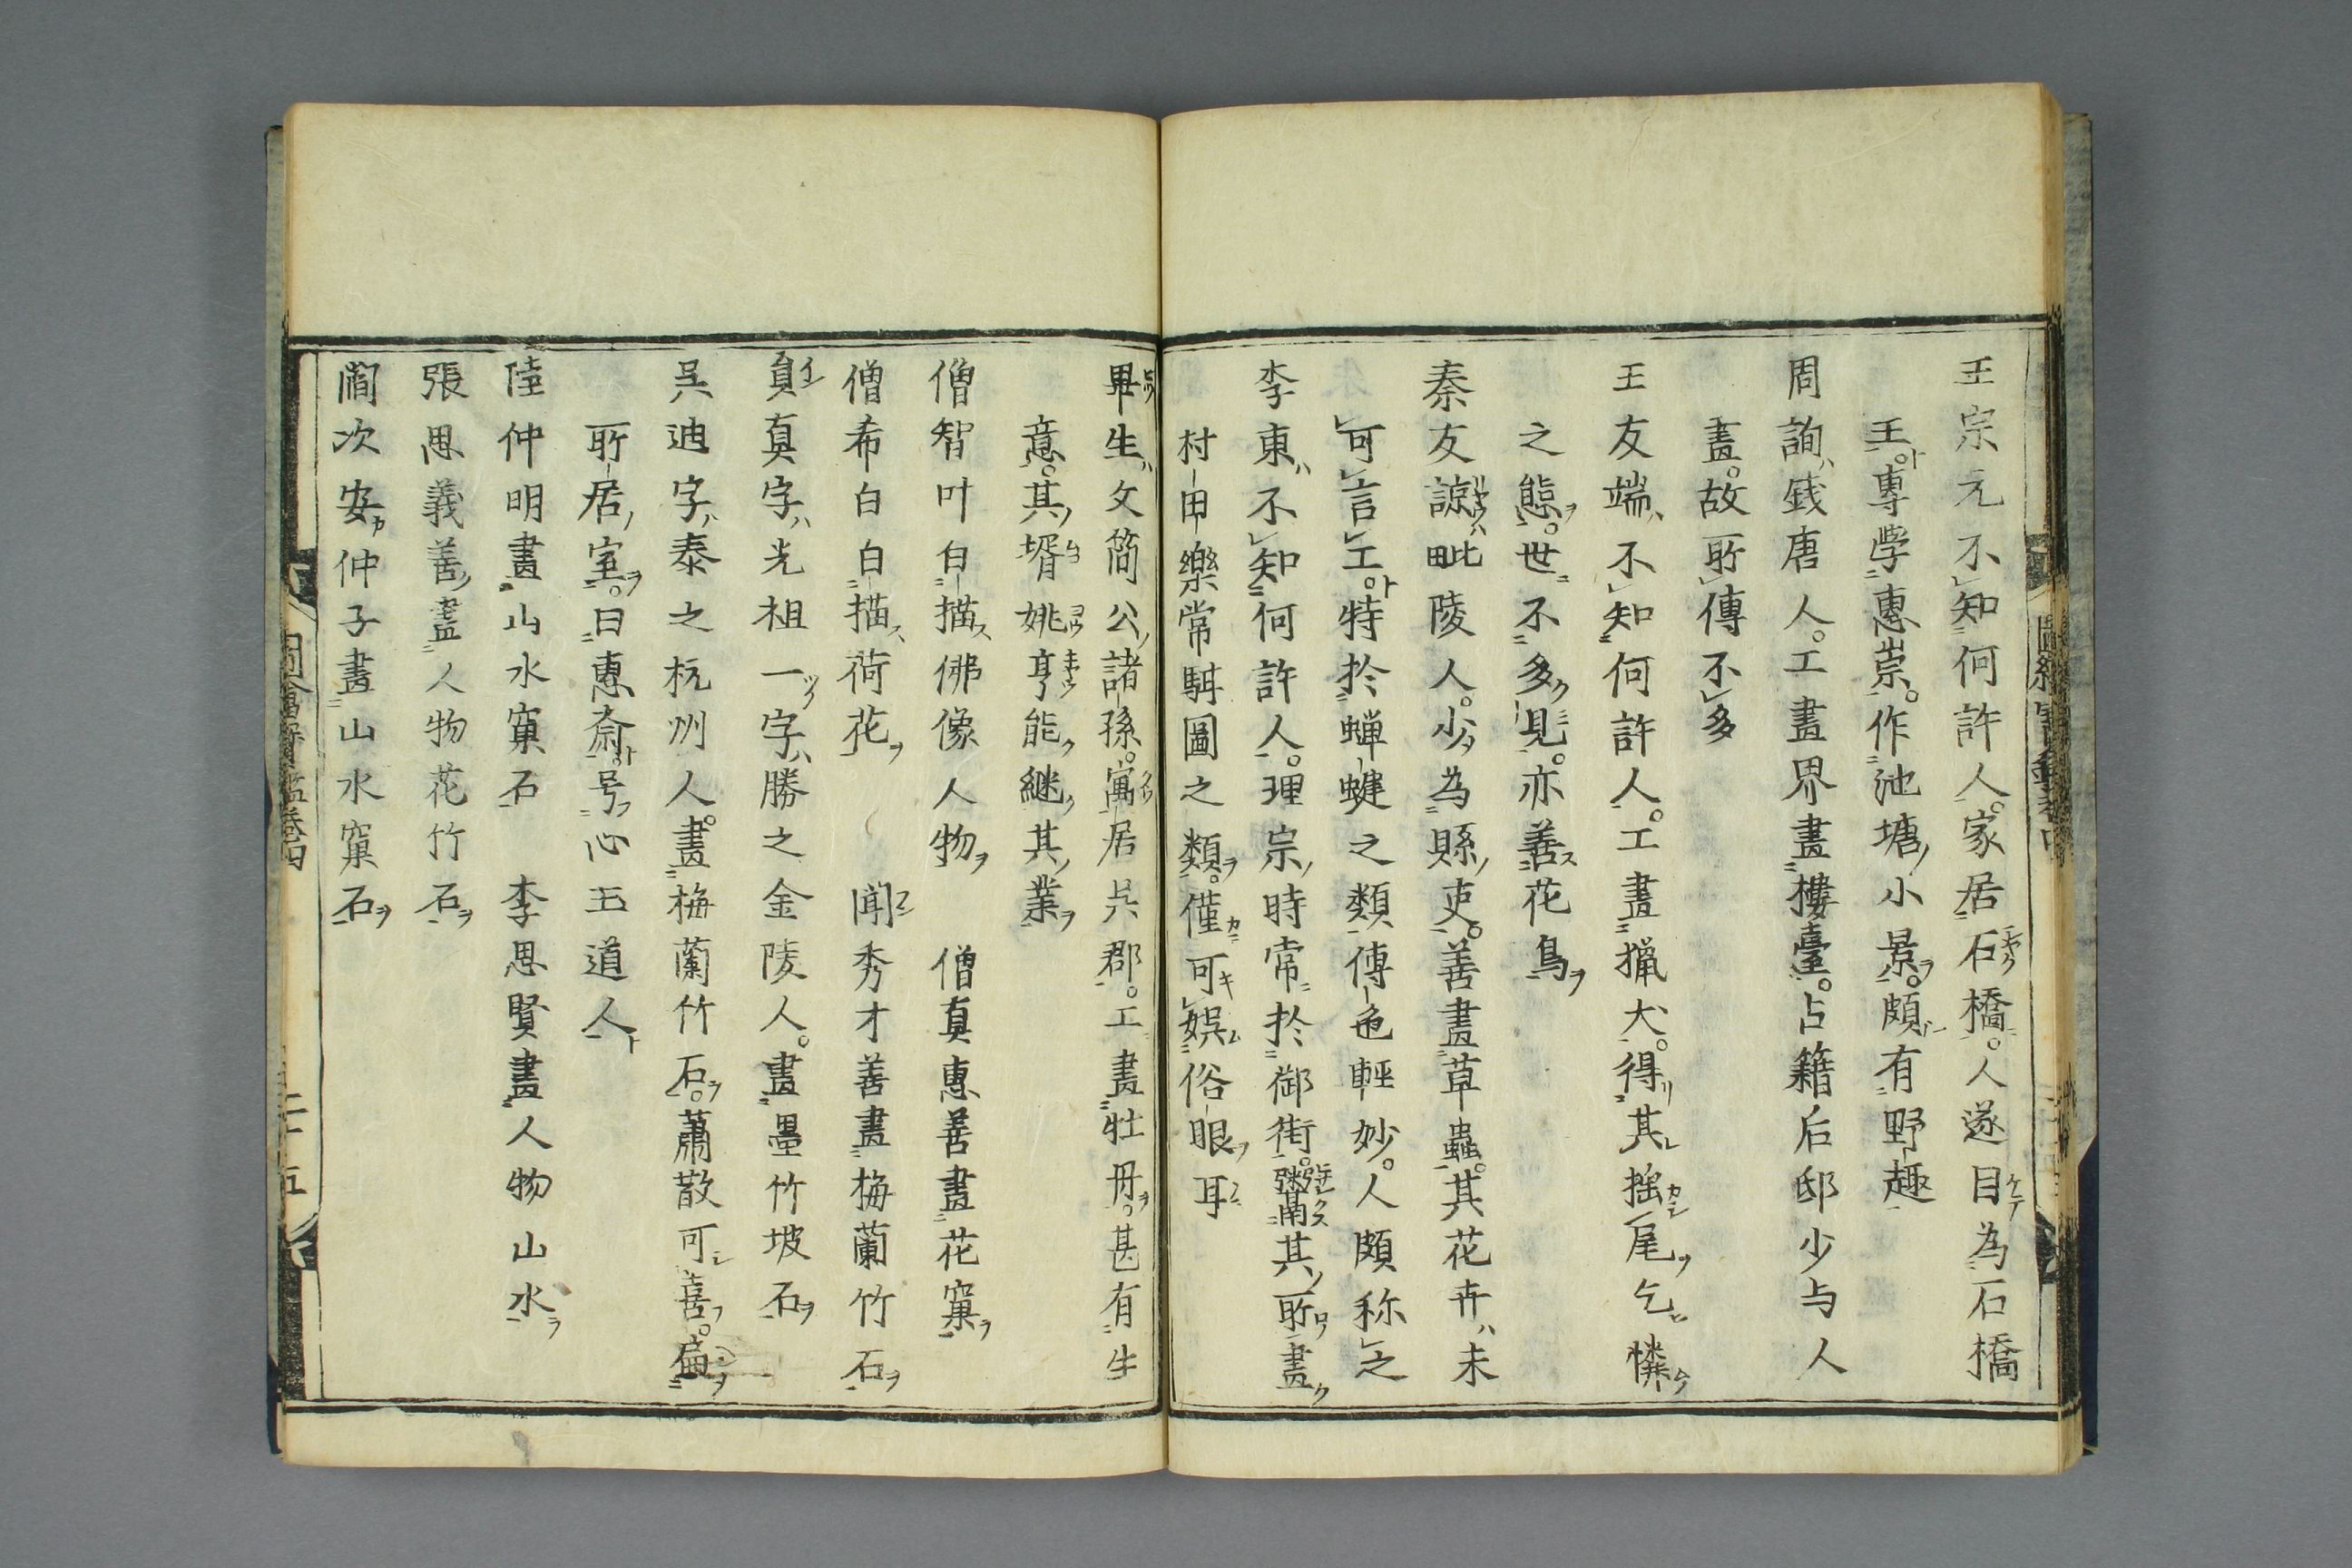 王宗元不知何許人。家居石橋。人遂目為石橋
王。專学惠崇。作池塘小景。頗有野趣
周詢錢唐人。工畫界畫樓臺。占籍后邸少与人
畫。故所傳不多
王友端不知何許人。工畫猟犬。得其揺尾乞憐
之態。世不多見。亦善花鳥
秦友諒毗陵人。少為縣吏。善畫草蟲。其花卉未
可言工。特於蝉蝶之類傳色輕妙。人頗称之
李東不知何許人。理宗時常於御街。鬻其所畫
村田樂常騨圖之類。僅可娯俗眼耳
畢生文簡公諸孫。寓居呉郡。工畫牡丹。甚有生
意。其壻姚亨能継其業
僧智叶白描佛像人物 僧真惠善畫花窠
僧希白白描荷花 聞秀才善畫梅蘭竹石
員真字光祖一字勝之金陵人。畫墨竹坡石
呉迪字泰之杭州人。畫梅蘭竹石。蕭散可喜。扁
所居室。曰惠斎。号心王道人
陸仲明畫山水窠石 李思賢畫人物山水
張思義善畫人物花竹石
閻次安仲子畫山水窠石
圖繪寶鑑卷四
二十五